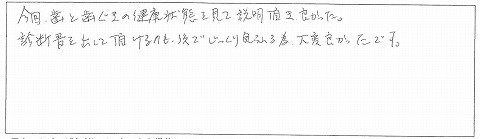 今回、歯と歯ぐきの健康状態を見て説明頂き良かった。
診断書を出して頂けるのも、後でじっくり見えれる為、大変良かったです。